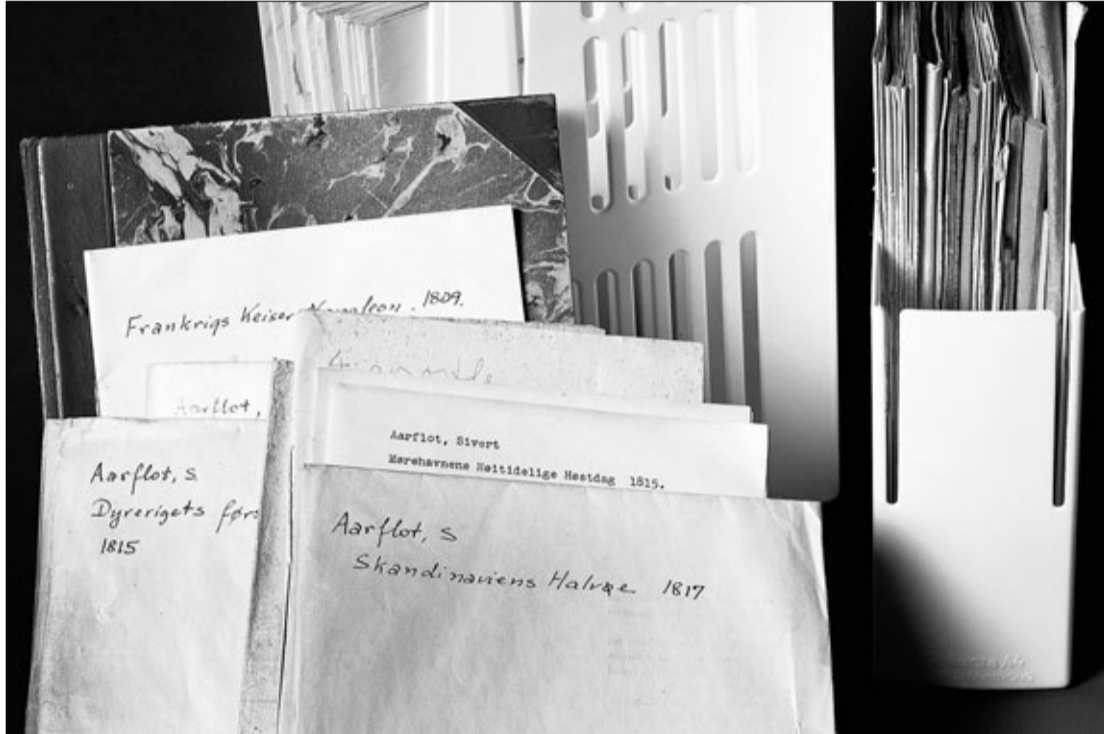 Frankrigs Keiser Napoleon. 1809.
Aarflot,
Aarflot, Sivert
Mørehavnens Høitidelige Høstdag 1815.
Aarflot, S
Dyrerigets førs
1815
Aarflot, S
Skandinaviens Halvøe 1817